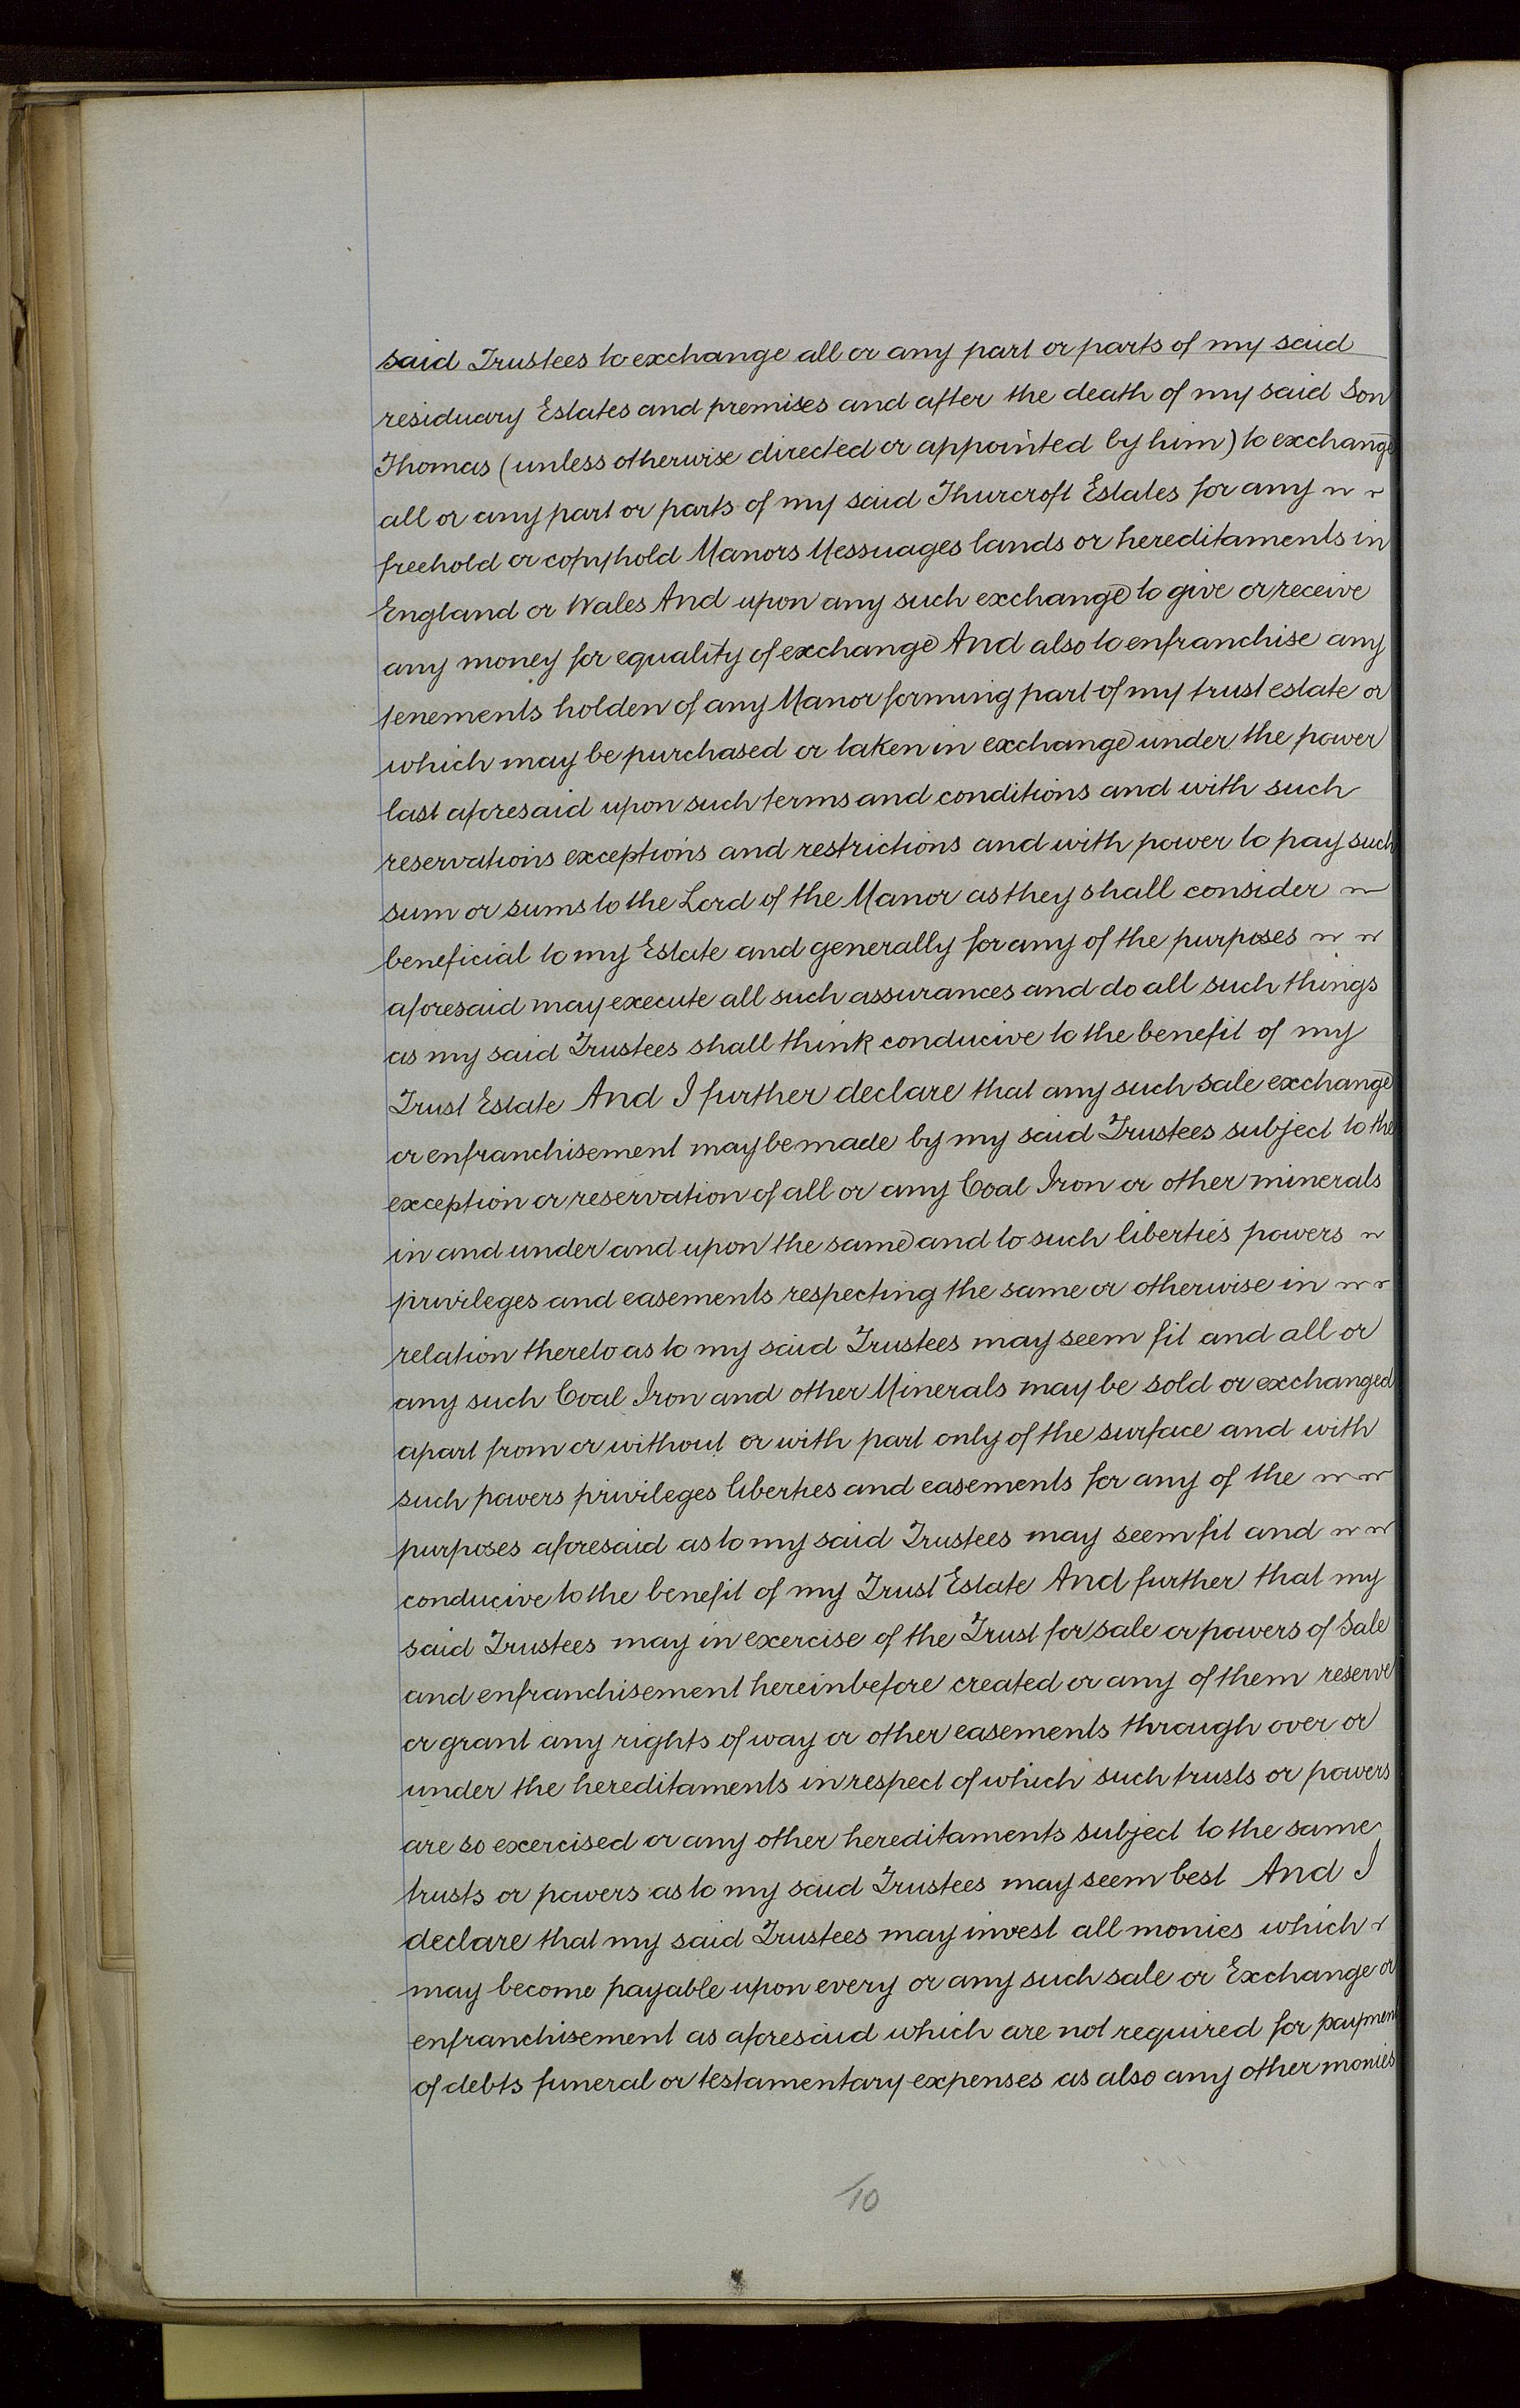 said Trustees to exchange all or any part or parts of my said
residuary Estates and premises and after the death of my said Son
Thomas (unless otherwise directed or appointed by him) to exchange
all or any part or parts of my said Thurcroft Estates for any
freehold or copyhold Manors Messuages lands or hereditaments in
England or Wales And upon any such exchange to give or receive
any money for equality of exchange And also to enfranchise any
tenements holden of any Manor forming part of my trust estate or
which may be purchased or taken in exchange under the power
last aforesaid upon such terms and conditions and with such
reservations exceptions and restrictions and with power to pay such
sum or sums to the Lord of the Manor as they shall consider
beneficial to my Estate and generally for any of the purposes
aforesaid may execute all such assurances and do all such things
as my said Trustees shall think conducive to the benefit of my
Trust Estate And I further declare that any such sale exchange
or enfranchisement may be made by my said Trustees subject to the
exception or reservation of all or any Coal Iron or other minerals
in and under and upon the same and to such liberties powers
privileges and easements respecting the same or otherwise in
relation thereto as to my said Trustees may seem fit and all or
any such Coal Iron and other Minerals may be sold or exchanged
apart from or without or with part only of the surface and with
such powers privileges liberties and easements for any of the
purposes aforesaid as to my said Trustees may seem fit and
conducive to the benefit of my Trust Estate And further that my
said Trustees may in exercise of the Trust for sale or powers of Sale
and enfranchisement hereinbefore created or any of them reserve
or grant any rights of way or other easements through over or
under the hereditaments in respect of which such trusts or powers
are so exercised or any other hereditaments subject to the same
trusts or powers as to my said Trustees may seem best And I
declare that my said Trustees may invest all monies which
may become payable upon every or any such sale or Exchange or
enfranchisement as aforesaid which are not required for paymen
of debts funeral or testamentary expenses as also any other monies
10